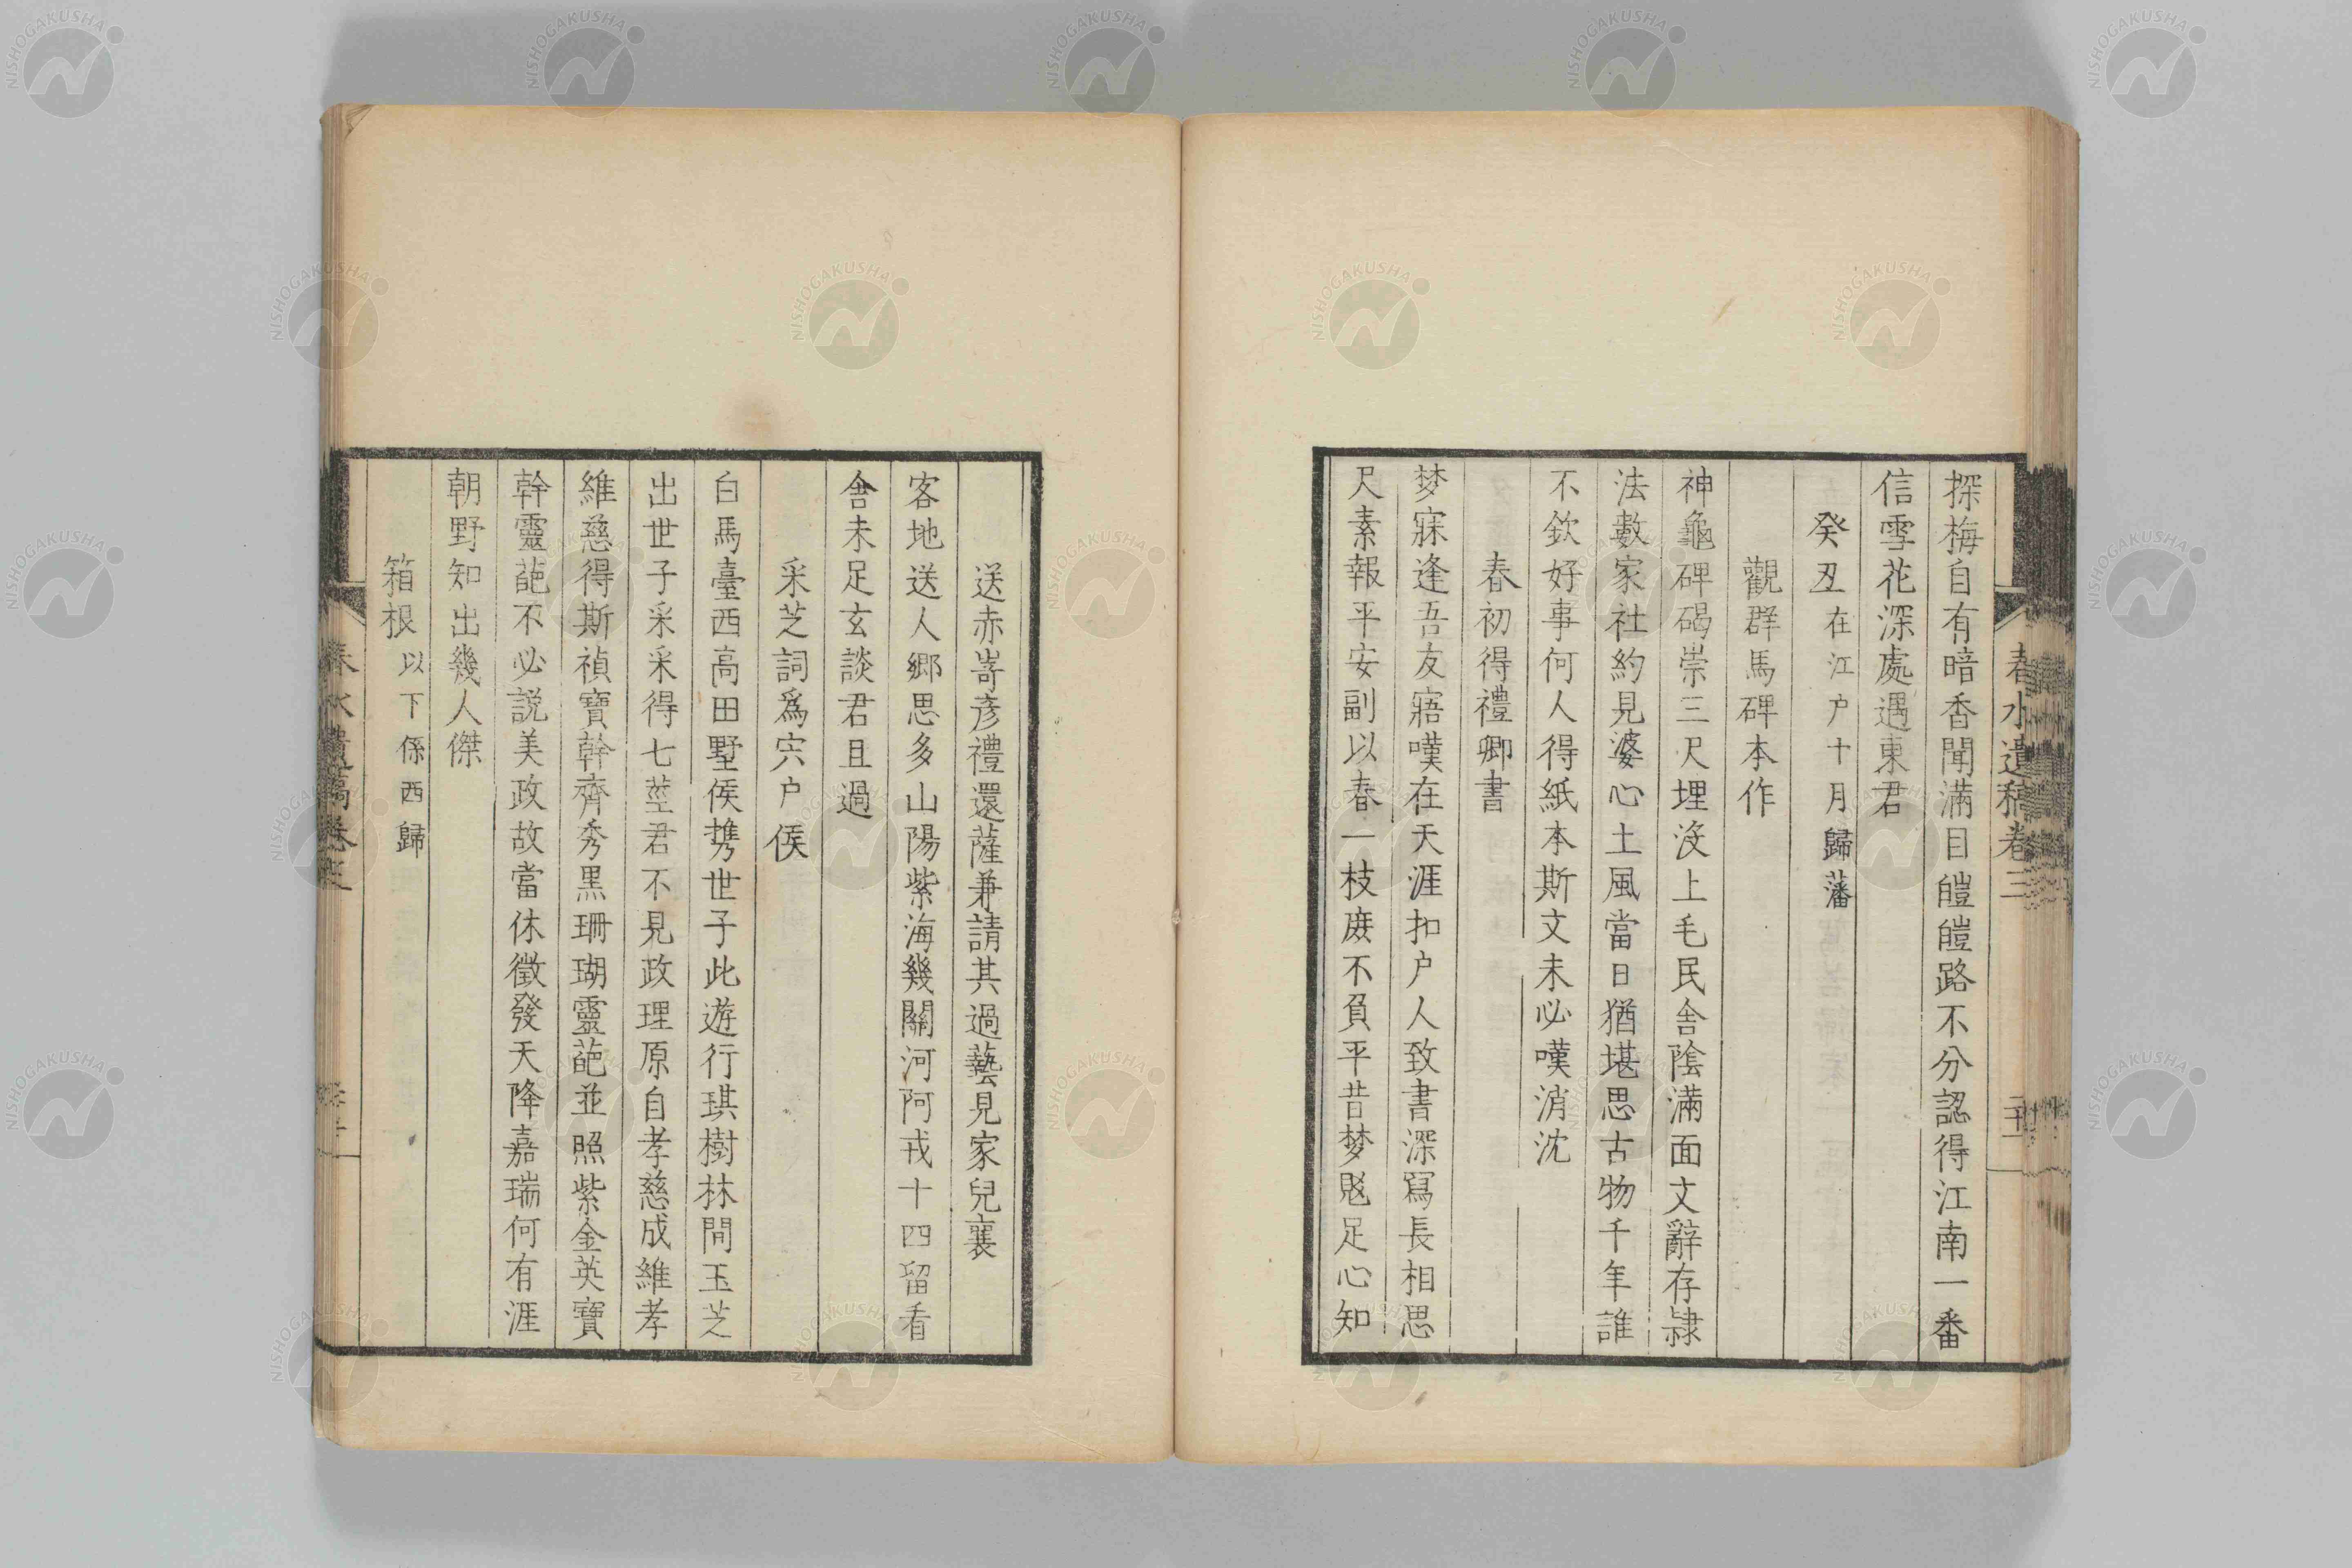 春水遺稿卷三
探梅自有暗香聞滿目皚皚路不分認得江南一番
信雪花深處遇東君
癸丑在江户十月歸藩
觀群馬碑本作
神龜碑碣崇三尺埋没上毛民舍陰滿面文辭存隷
法數家社約見婆心土風當日猶堪思古物千年誰
不欽好事何人得紙本斯文未必嘆消沈
春初得禮卿書
梦寐逢吾友寤嘆在天涯扣户人致書深寫長相思
尺素報平安副以春一枝庶不負平昔梦足心知
送赤嵜彦禮還薩兼請其過藝見家兒襄
客地送人郷思多山陽紫海幾關河阿戎十四留看
舍未足玄談君且過
采芝詞爲宍户侯
白馬臺西高田墅侯携世子此遊行琪樹林間玉芝
出世子采采得七莖君不見政理原自孝慈成維孝
維慈得斯禎寶幹齊秀黒珊瑚靈葩並照紫金英寶
幹靈葩不必説美政故當休徵發天降嘉瑞何有涯
朝野知出幾人傑
箱根以下係西歸
春水遺稿卷三
NISHOGAKUSHA